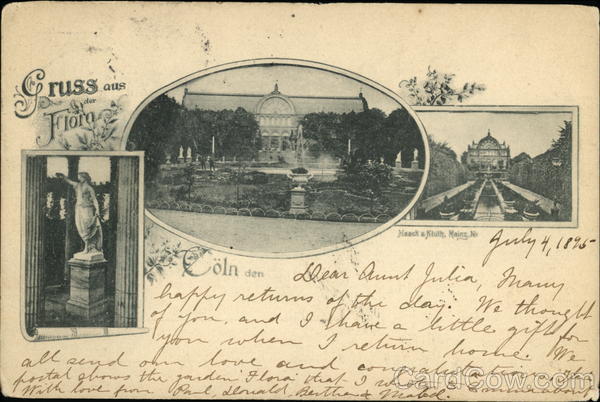 Gruss aus
der
Flora
Haack & Kluth, Mainz. No
Cöln den
July 4, 1895
Dear Aunt Julia, Many
happy returns of the day. We thought
of you, and I have a little gift for
you when I return home. We
all send our love and congratulations. This
postal shows the garden "Flora" that I wrote Emma about
With love from Paul, Donald, Bertha & Mabel.
CardCow.com